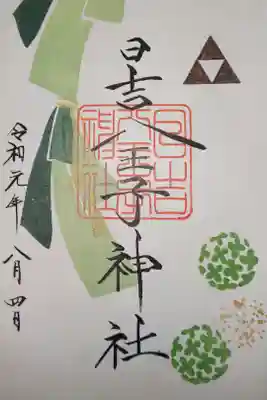 日吉八王子神社
日吉八王子神社
令和元年八月四日